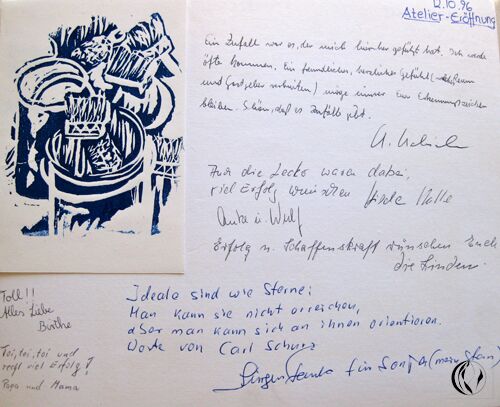 12.10.96
Atelier-Eröffnung
Ein Zufall war es, der mich hierher geführt hat. Ich werde
öfter kommen. Ein freundliches, herzliches Gefühl
und Gastgeber möge immer Euer Erkennungszeichen
bleiben. Schön, daß es Zufälle gibt.
Für die Lecko waren dabei,
viel Erfolg wünschen
Anke u. Wulf
Erfolg u. Schaffenskraft wünschen Euch
die Lindens.
Toll!!
Alles Liebe
Birthe
Toi, toi, toi und
recht viel Erfolg!
Papa und Mama
Ideale sind wie Sterne:
Man kann sie nicht erreichen,
aber man kann sich an ihnen orientieren.
Worte von Carl Schurz
Jürgen für Sonja (mein Stern)